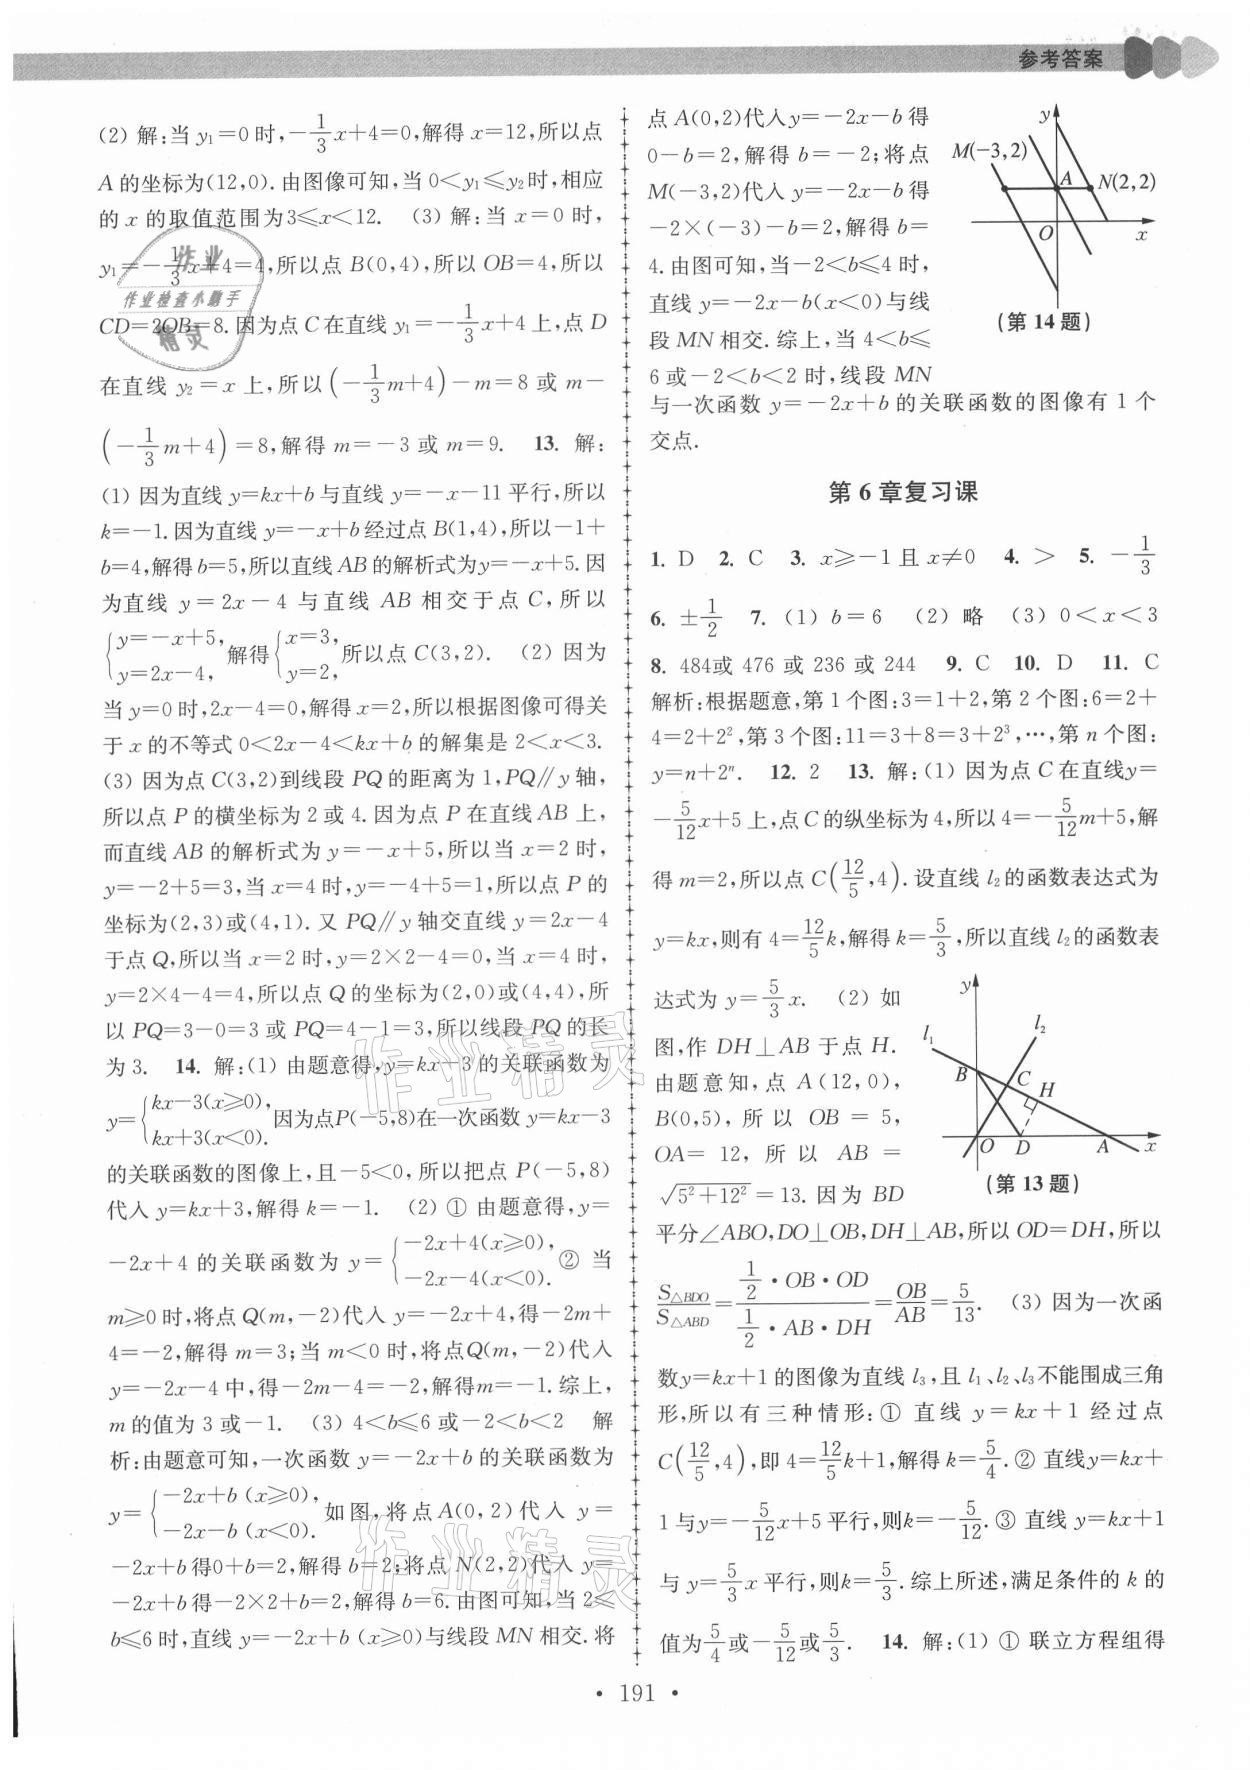 参考答案
(2) 解:当 y₁=0 时,-1/3x+4=0,解得 x=12,所以点
A 的坐标为(12,0). 由图像可知,当 0<y₁≤y₂时,相应
的 x 的取值范围为3≤x<12. (3) 解:当 x=0 时,
y₁=-1/3x+4=4,所以点 B(0,4),所以 OB=4,所以
CD=2OB=8. 因为点 C 在直线 y₁=-1/3x+4 上,点 D
在直线 y₂=x 上,所以(-1/3m+4)-m=8 或 m-
(-1/3m+4)=8,解得 m=-3 或 m=9. 13. 解:
(1) 因为直线 y=kx+b 与直线 y=-x-11 平行,所以
k=-1. 因为直线 y=-x+b 经过点 B(1,4),所以-1+
b=4,解得 b=5,所以直线 AB 的解析式为y=-x+5. 因
为直线 y=2x-4 与直线 AB 相交于点 C,所以
{y=-x+5, y=2x-4, 解得{x=3, y=2, 所以点 C(3,2). (2) 因为
当 y=0 时,2x-4=0,解得 x=2,所以根据图像可得关
于 x 的不等式 0<2x-4<kx+b 的解集是 2<x<3.
(3) 因为点 C(3,2)到线段 PQ 的距离为 1,PQ∥y 轴,
所以点 P 的横坐标为 2 或 4. 因为点 P 在直线 AB 上,
而直线 AB 的解析式为 y=-x+5,所以当 x=2 时,
y=-2+5=3,当 x=4 时,y=-4+5=1,所以点 P 的
坐标为(2,3)或(4,1). 又 PQ∥y 轴交直线 y=2x-4
于点 Q,所以当 x=2 时,y=2×2-4=0,当 x=4 时,
y=2×4-4=4,所以点 Q 的坐标为(2,0)或(4,4),所
以 PQ=3-0=3 或 PQ=4-1=3,所以线段 PQ 的长
为 3. 14. 解:(1) 由题意得,y=kx-3 的关联函数为
y={kx-3(x≥0), kx+3(x<0). 因为点P(-5,8)在一次函数 y=kx-3
的关联函数的图像上,且-5<0,所以把点 P(-5,8)
代入 y=kx+3,解得 k=-1. (2) ① 由题意得,y=
-2x+4 的关联函数为 y={-2x+4(x≥0), -2x-4(x<0). ② 当
m≥0 时,将点 Q(m,-2)代入 y=-2x+4,得-2m+
4=-2,解得 m=3;当 m<0 时,将点Q(m,-2)代入
y=-2x-4 中,得-2m-4=-2,解得m=-1. 综上,
m 的值为 3 或-1. (3) 4<b≤6 或-2<b<2 解
析:由题意可知,一次函数 y=-2x+b 的关联函数为
y={-2x+b (x≥0), -2x-b (x<0). 如图,将点 A(0,2)代入 y=
-2x+b 得0+b=2,解得 b=2;将点 N(2,2)代入 y=
-2x+b 得-2×2+b=2,解得 b=6. 由图可知,当 2≤
b≤6 时,直线 y=-2x+b (x≥0)与线段 MN 相交. 将
点 A(0,2)代入y=-2x-b 得
0-b=2,解得 b=-2;将点
M(-3,2)代入 y=-2x-b 得
-2×(-3)-b=2,解得 b=
4. 由图可知,当-2<b≤4 时,
直线 y=-2x-b(x<0)与线
段 MN 相交. 综上,当 4<b≤
6 或-2<b<2 时,线段 MN
与一次函数 y=-2x+b 的关联函数的图像有 1 个
交点.
y
M(-3,2)
A
N(2,2)
O
x
(第 14 题)
第 6 章复习课
1. D 2. C 3. x≥-1 且 x≠0 4. > 5. -1/3
6. ±1/2 7. (1) b=6 (2) 略 (3) 0<x<3
8. 484或 476 或 236 或 244 9. C 10. D 11. C
解析:根据题意,第 1 个图:3=1+2,第 2 个图:6=2+
4=2+2²,第 3 个图:11=3+8=3+2³,…,第 n 个图:
y=n+2ⁿ. 12. 2 13. 解:(1) 因为点 C 在直线y=
-5/12x+5 上,点 C 的纵坐标为 4,所以 4=-5/12m+5,解
得 m=2,所以点 C(12/5,4). 设直线 l₂的函数表达式为
y=kx,则有 4=12/5k,解得 k=5/3,所以直线 l₂的函数表
达式为 y=5/3x. (2) 如
图,作 DH⊥AB 于点 H.
由题意知,点 A(12,0),
B(0,5),所以 OB=5,
OA=12,所以 AB=
√(5²+12²)=13. 因为 BD
y
l₁
l₂
B
C
H
O
D
A
x
(第 13 题)
平分∠ABO,DO⊥OB,DH⊥AB,所以 OD=DH,所以
S△BDO/S△ABD=(1/2·OB·OD)/(1/2·AB·DH)=OB/AB=5/13. (3) 因为一次函
数y=kx+1 的图像为直线 l₃,且 l₁、l₂、l₃不能围成三角
形,所以有三种情形:① 直线 y=kx+1 经过点
C(12/5,4),即 4=12/5k+1,解得 k=5/4. ② 直线y=kx+
1 与y=-5/12x+5 平行,则k=-5/12. ③ 直线 y=kx+1
与 y=5/3x 平行,则k=5/3. 综上所述,满足条件的 k 的
值为5/4或-5/12或5/3. 14. 解:(1) ① 联立方程组得
• 191 •
作业
作业检查小助手
精灵
作业精灵
作业精灵